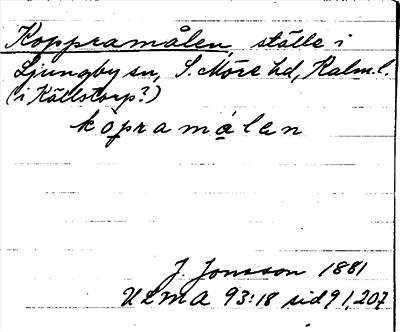 Koppramålen, ställe i
Ljungby sn, S. Möre hd, Kalm. l.
(i Källstorp?)
kopramålen
J. Jonsson 1881
ULMA 93:18 sid 91, 207